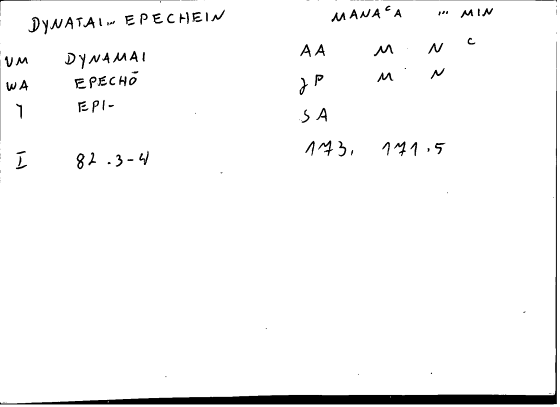 DYNATAI... EPECHEIN MANAᶜA ... MIN
VM DYNAMAI AA M N C
WA EPECHŌ JP M N
EPI- SA
I 82.3-4 173, 171.5